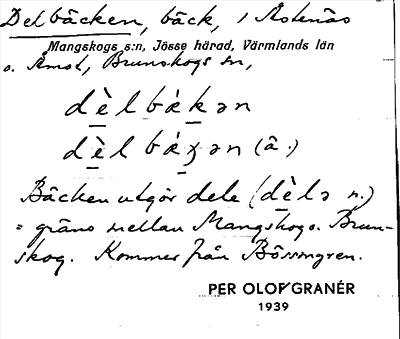 Delbäcken, bäck, i Åstenäs
Mangskogs s:n, Jösse härad, Värmlands län
o. Åmot, Brunskogs sn,
dèlbækən
dèlbæʒən (â.)
Bäcken utgör dele (dèlə n.)
= gräns mellan Mangskog o. Brun-
skog. Kommer från Bössmyren.
PER OLOF GRANÉR
1939